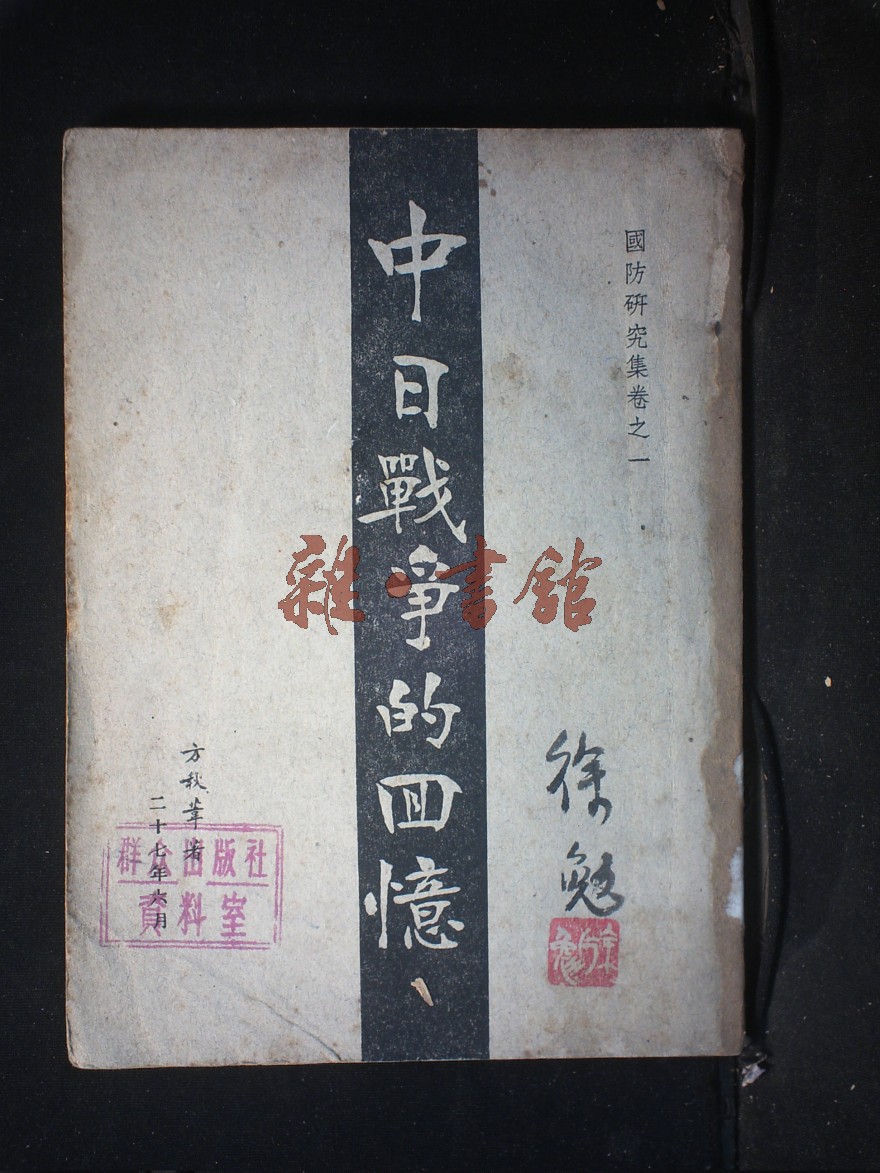 國防研究集卷之一
中日戰爭的回憶
徐勉
方秋葦著
二十七年六月
群众出版社
資料室
雜·書館